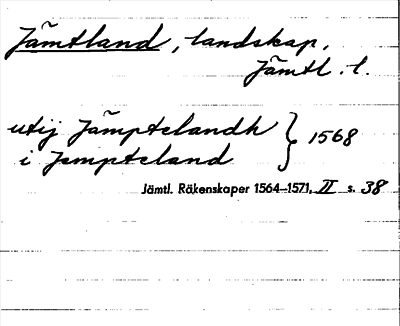 Jämtland, landskap.
Jämtl. l.
utij Jämptelandh } 1568
i Jempteland
Jämtl. Räkenskaper 1564–1571, II s. 38